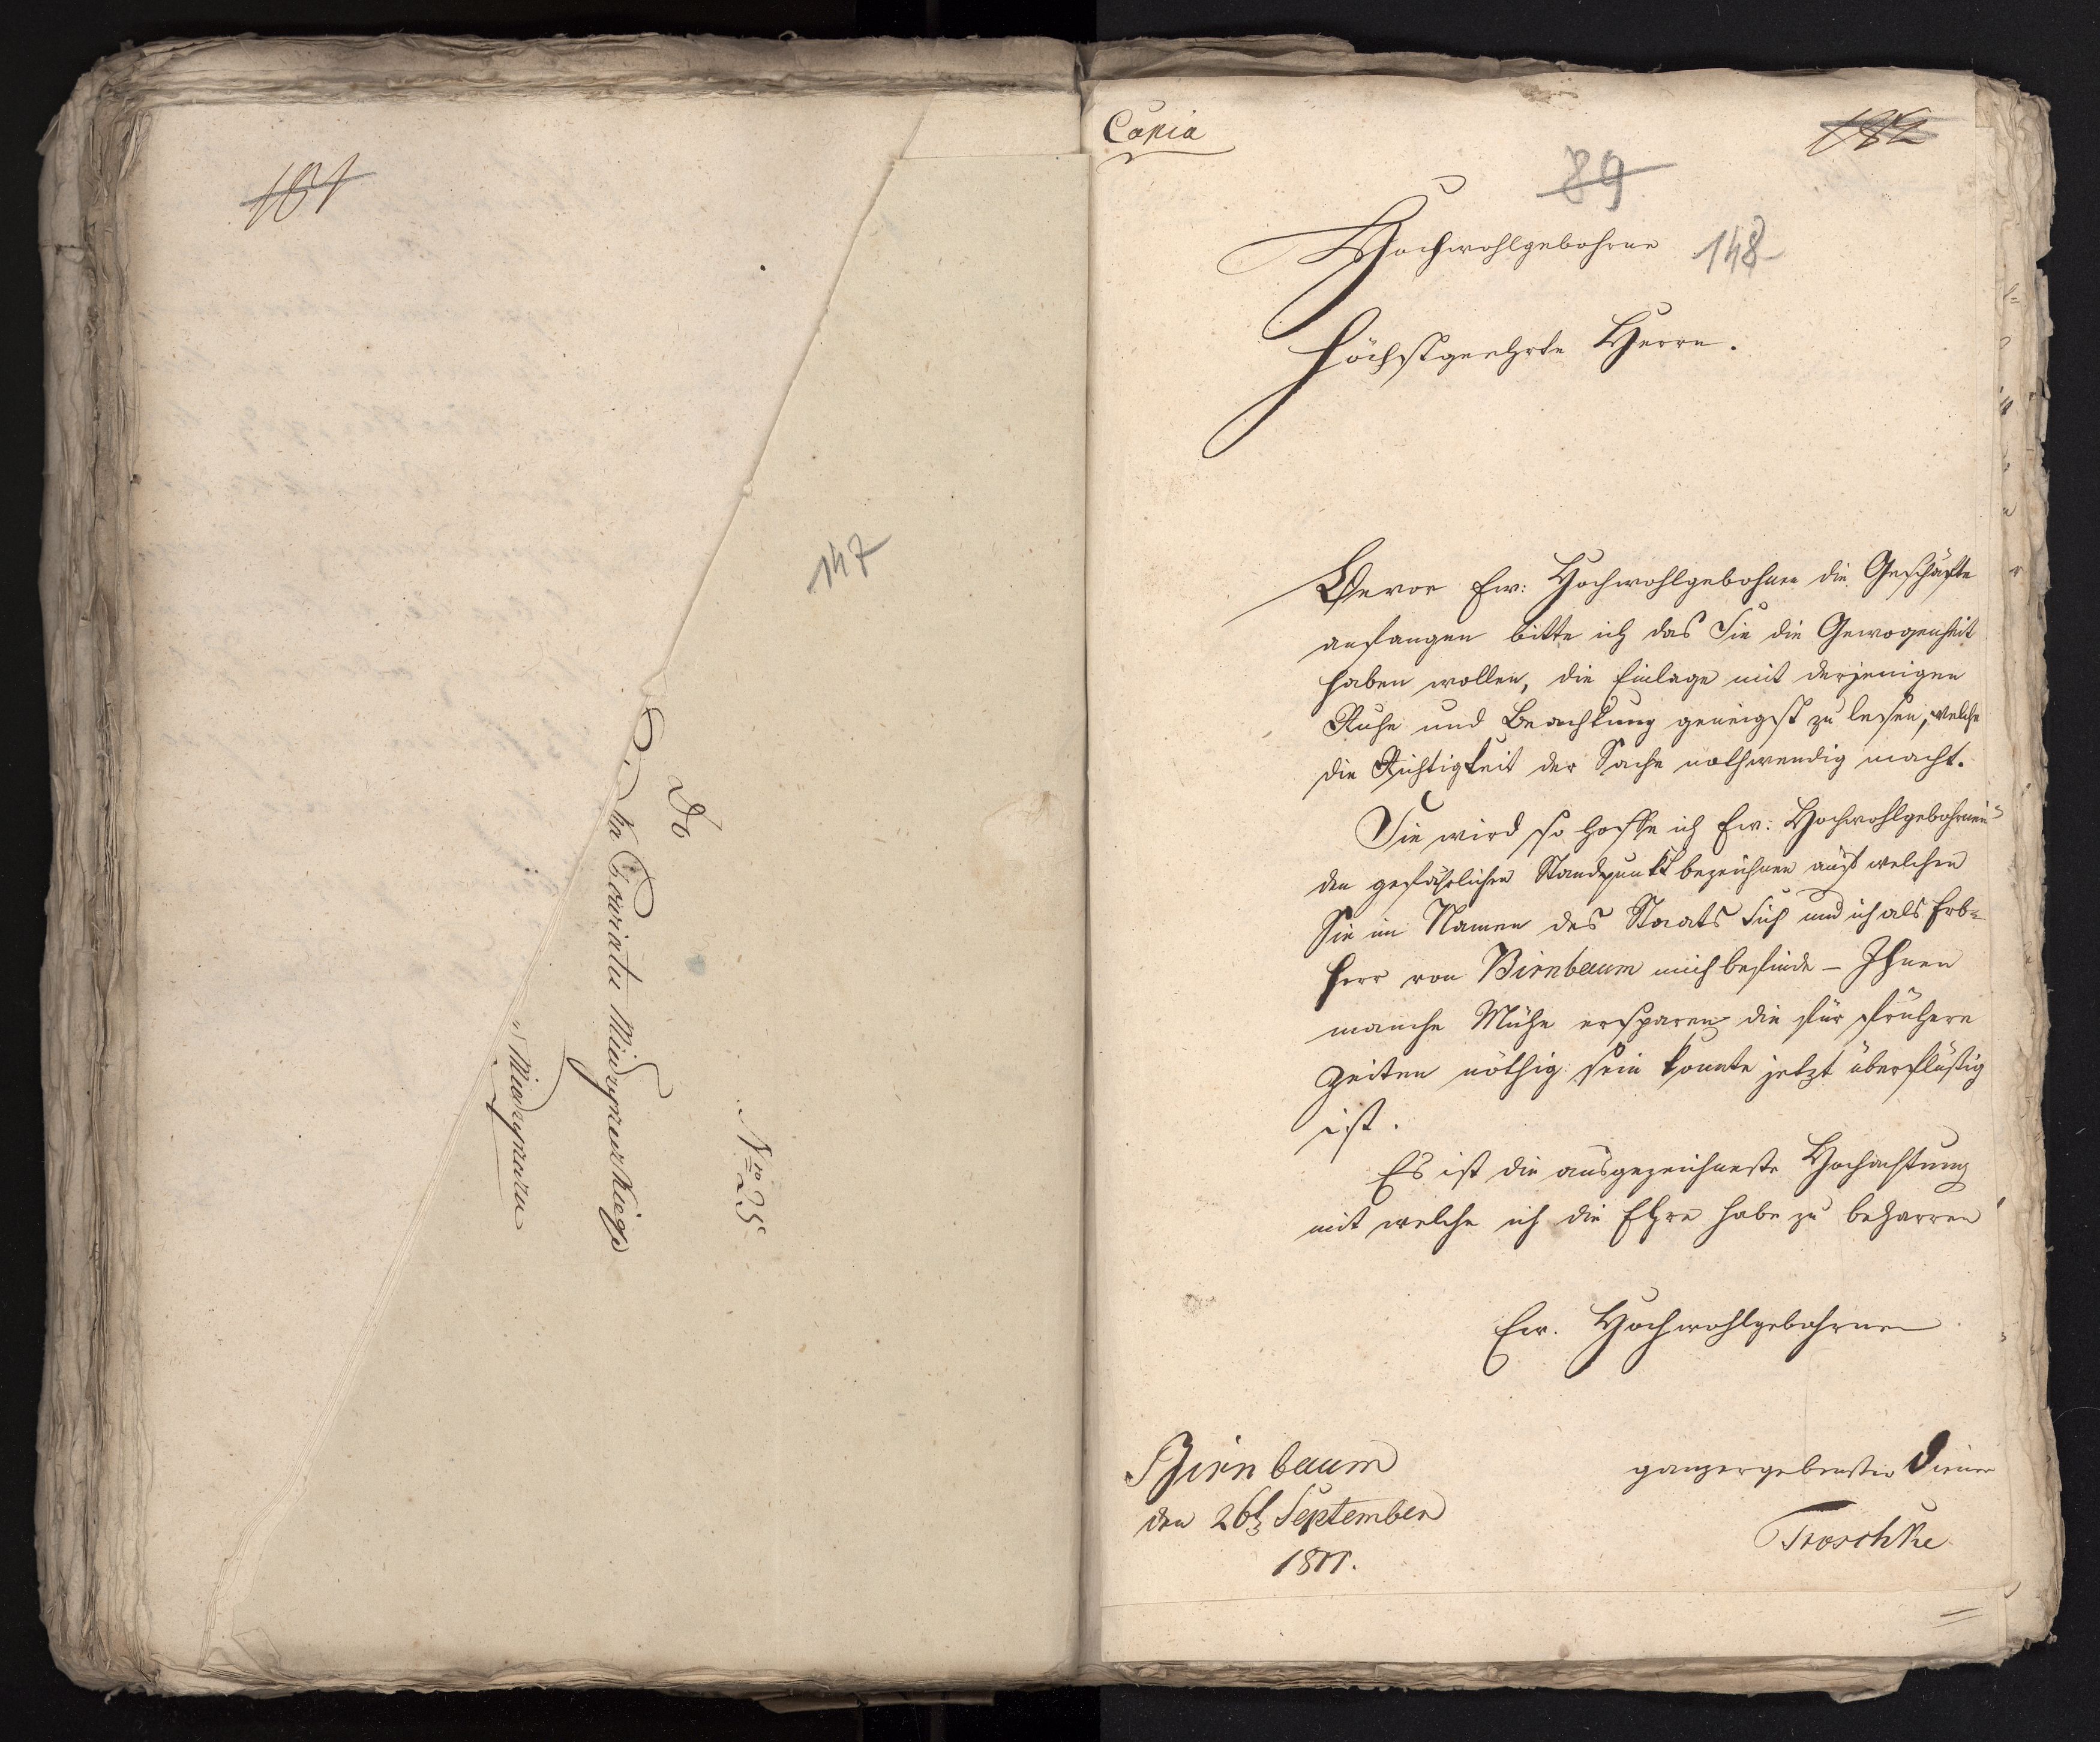 181
147
Do
J. Pa Powiatu Miedzyrzeckiego
w Miedzyrzeczu
Nro 25
Copia
182
89
148
Hochwohlgebohrne
Höchstgeehrte Herrn.
Bevor Ew: Hochwohlgebohrn die Geschäfte
anfangen bitte ich das Sie die Gewogenheit
haben wollen, die Einlage mit derjenigen
Ruhe und Beachtung geneigst zu lesen, welche
die Richtigkeit der Sache nothwendig macht.
Sie wird so hoffe ich Ew: Hochwohlgebohrnen
den gefährlichen Standpunkt bezeichnen auf welchen
Sie im Namen des Staats sich und ich als Erb=
herr von Birnbaum mich befinde – Ihnen
manche Mühe ersparen die für frühere
Zeiten nöthig sein konnte jetzt überflüßig
ist.
Es ist die ausgezeichneste Hochachtung
mit welche ich die Ehre habe zu beharren
Ew. Hochwohlgebohrnen
Birnbaum
den 26t September
1811.
ganzergebenster Diener
Troschke